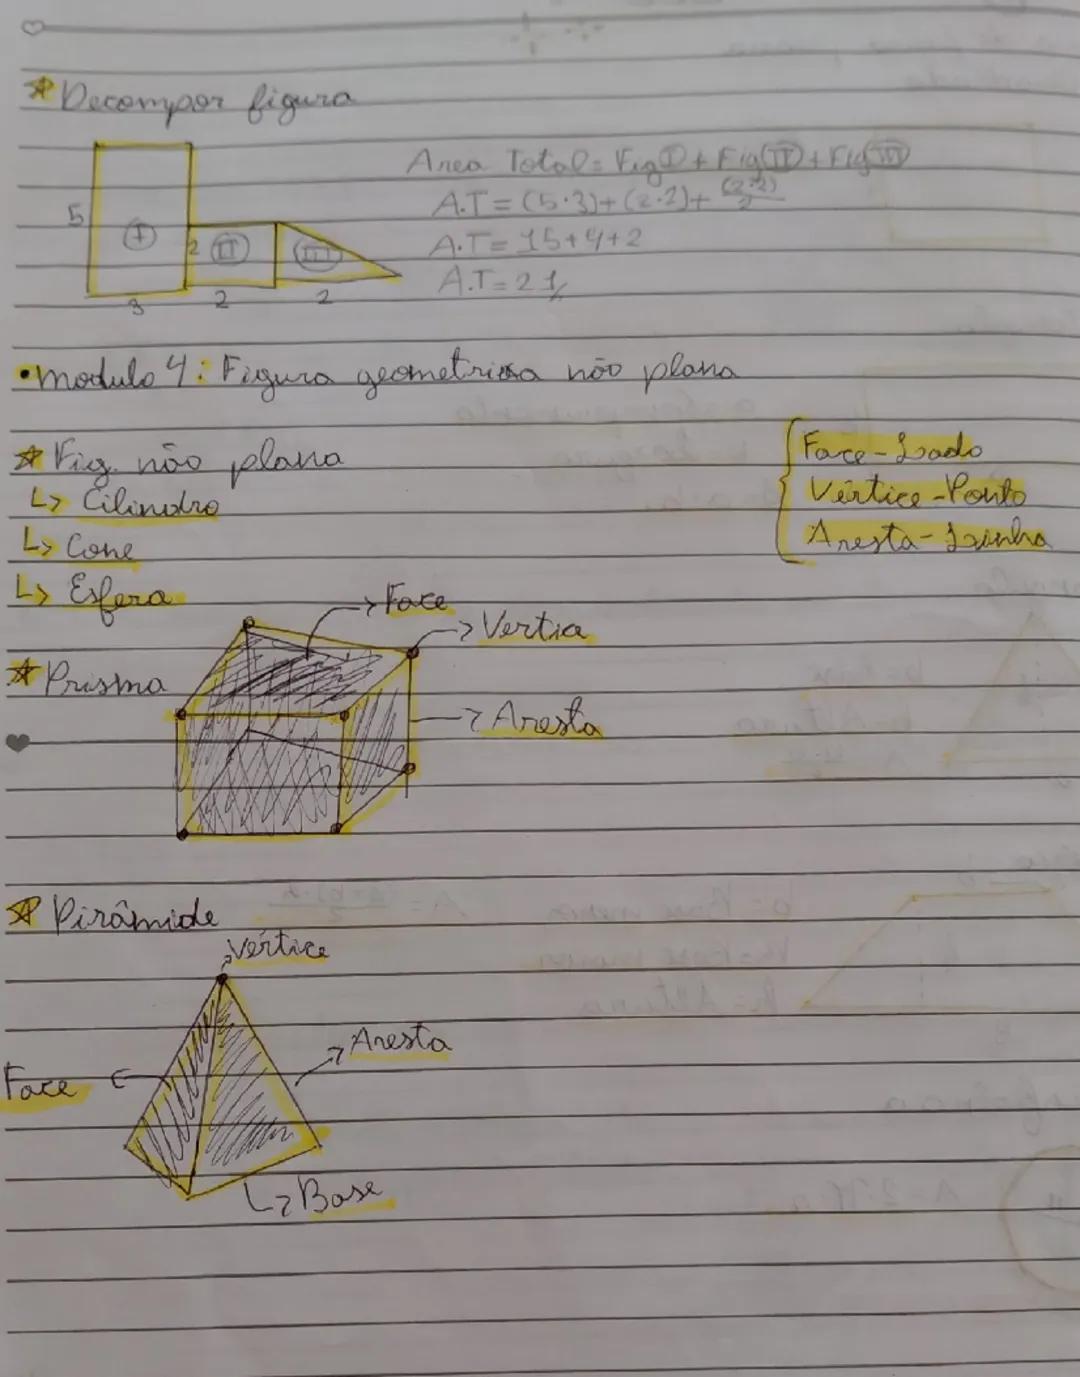 Decompor figura
Area Total = Fig I + Fig II + Fig III
A.T = (5·3)+(2·2)+ (2·2)/2
A.T = 15+4+2
A.T = 21
5
I
2
II
III
3
2
2
• modulo 4: Figura geometrica não plana
Fig. não plana
↳ Cilindro
↳ Cone
↳ Esfera
Face - Lado
Vértice - Ponto
Aresta - Linha
Prisma
→ Face
→ Vertice
→ Aresta
Pirâmide
Vértice
Aresta
Face
↳ Base